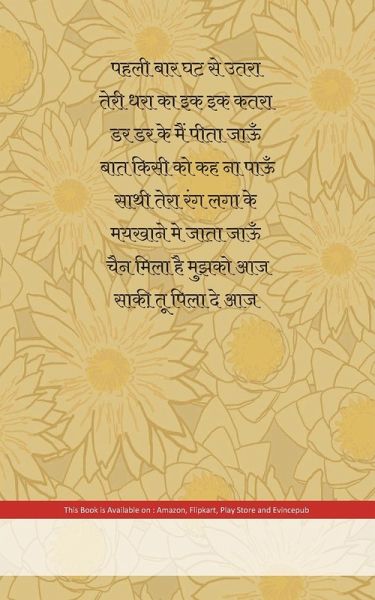 पहली बार घट से उतरा
तेरी धरा का इक इक कतरा
डर डर के मैं पीता जाऊँ
बात किसी को कह ना पाऊँ
साथी तेरा रंग लगा के
मयखाने मे जाता जाऊँ
चैन मिला है मुझको आज
साकी तू पिला दे आज
This Book is Available on : Amazon, Flipkart, Play Store and Evincepub